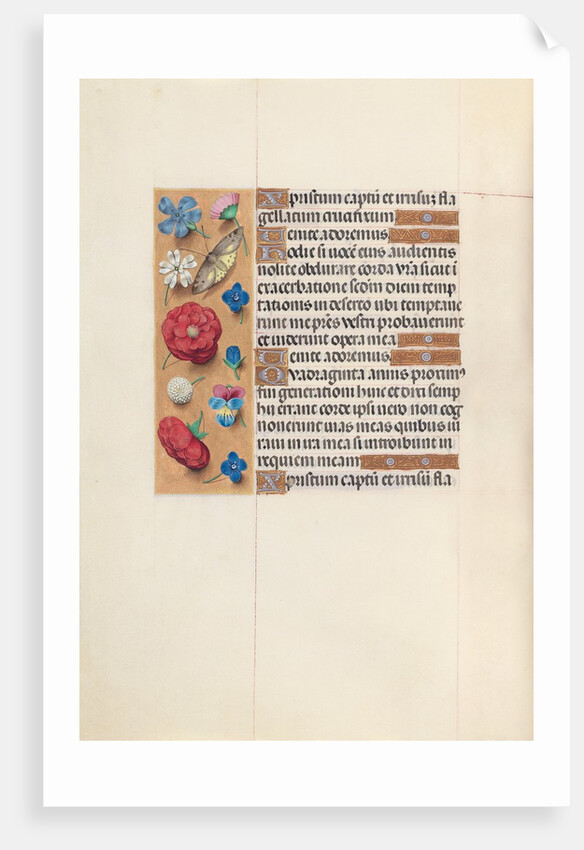 Xpristum captū et irrisuȝ fla
gellatum crucifixum
Uenite adoremus.
Hodie si uocē eius audieritis
nolite obdurare corda vr̄a sicut ī
exacerbatione scdm diem temp
tationis in deserto ubi temptaue
runt me pr̄es vestri probauerunt
et uiderunt opera mea
Uenite adoremus.
Quadraginta annis proximꝰ
fui generationi huic et dixi semp
hij errant corde ipsi uero non cog
nouerunt uias meas quibus iu
raui in ira mea si introibunt in
requiem meam
Xpristum captū et irrisū fla